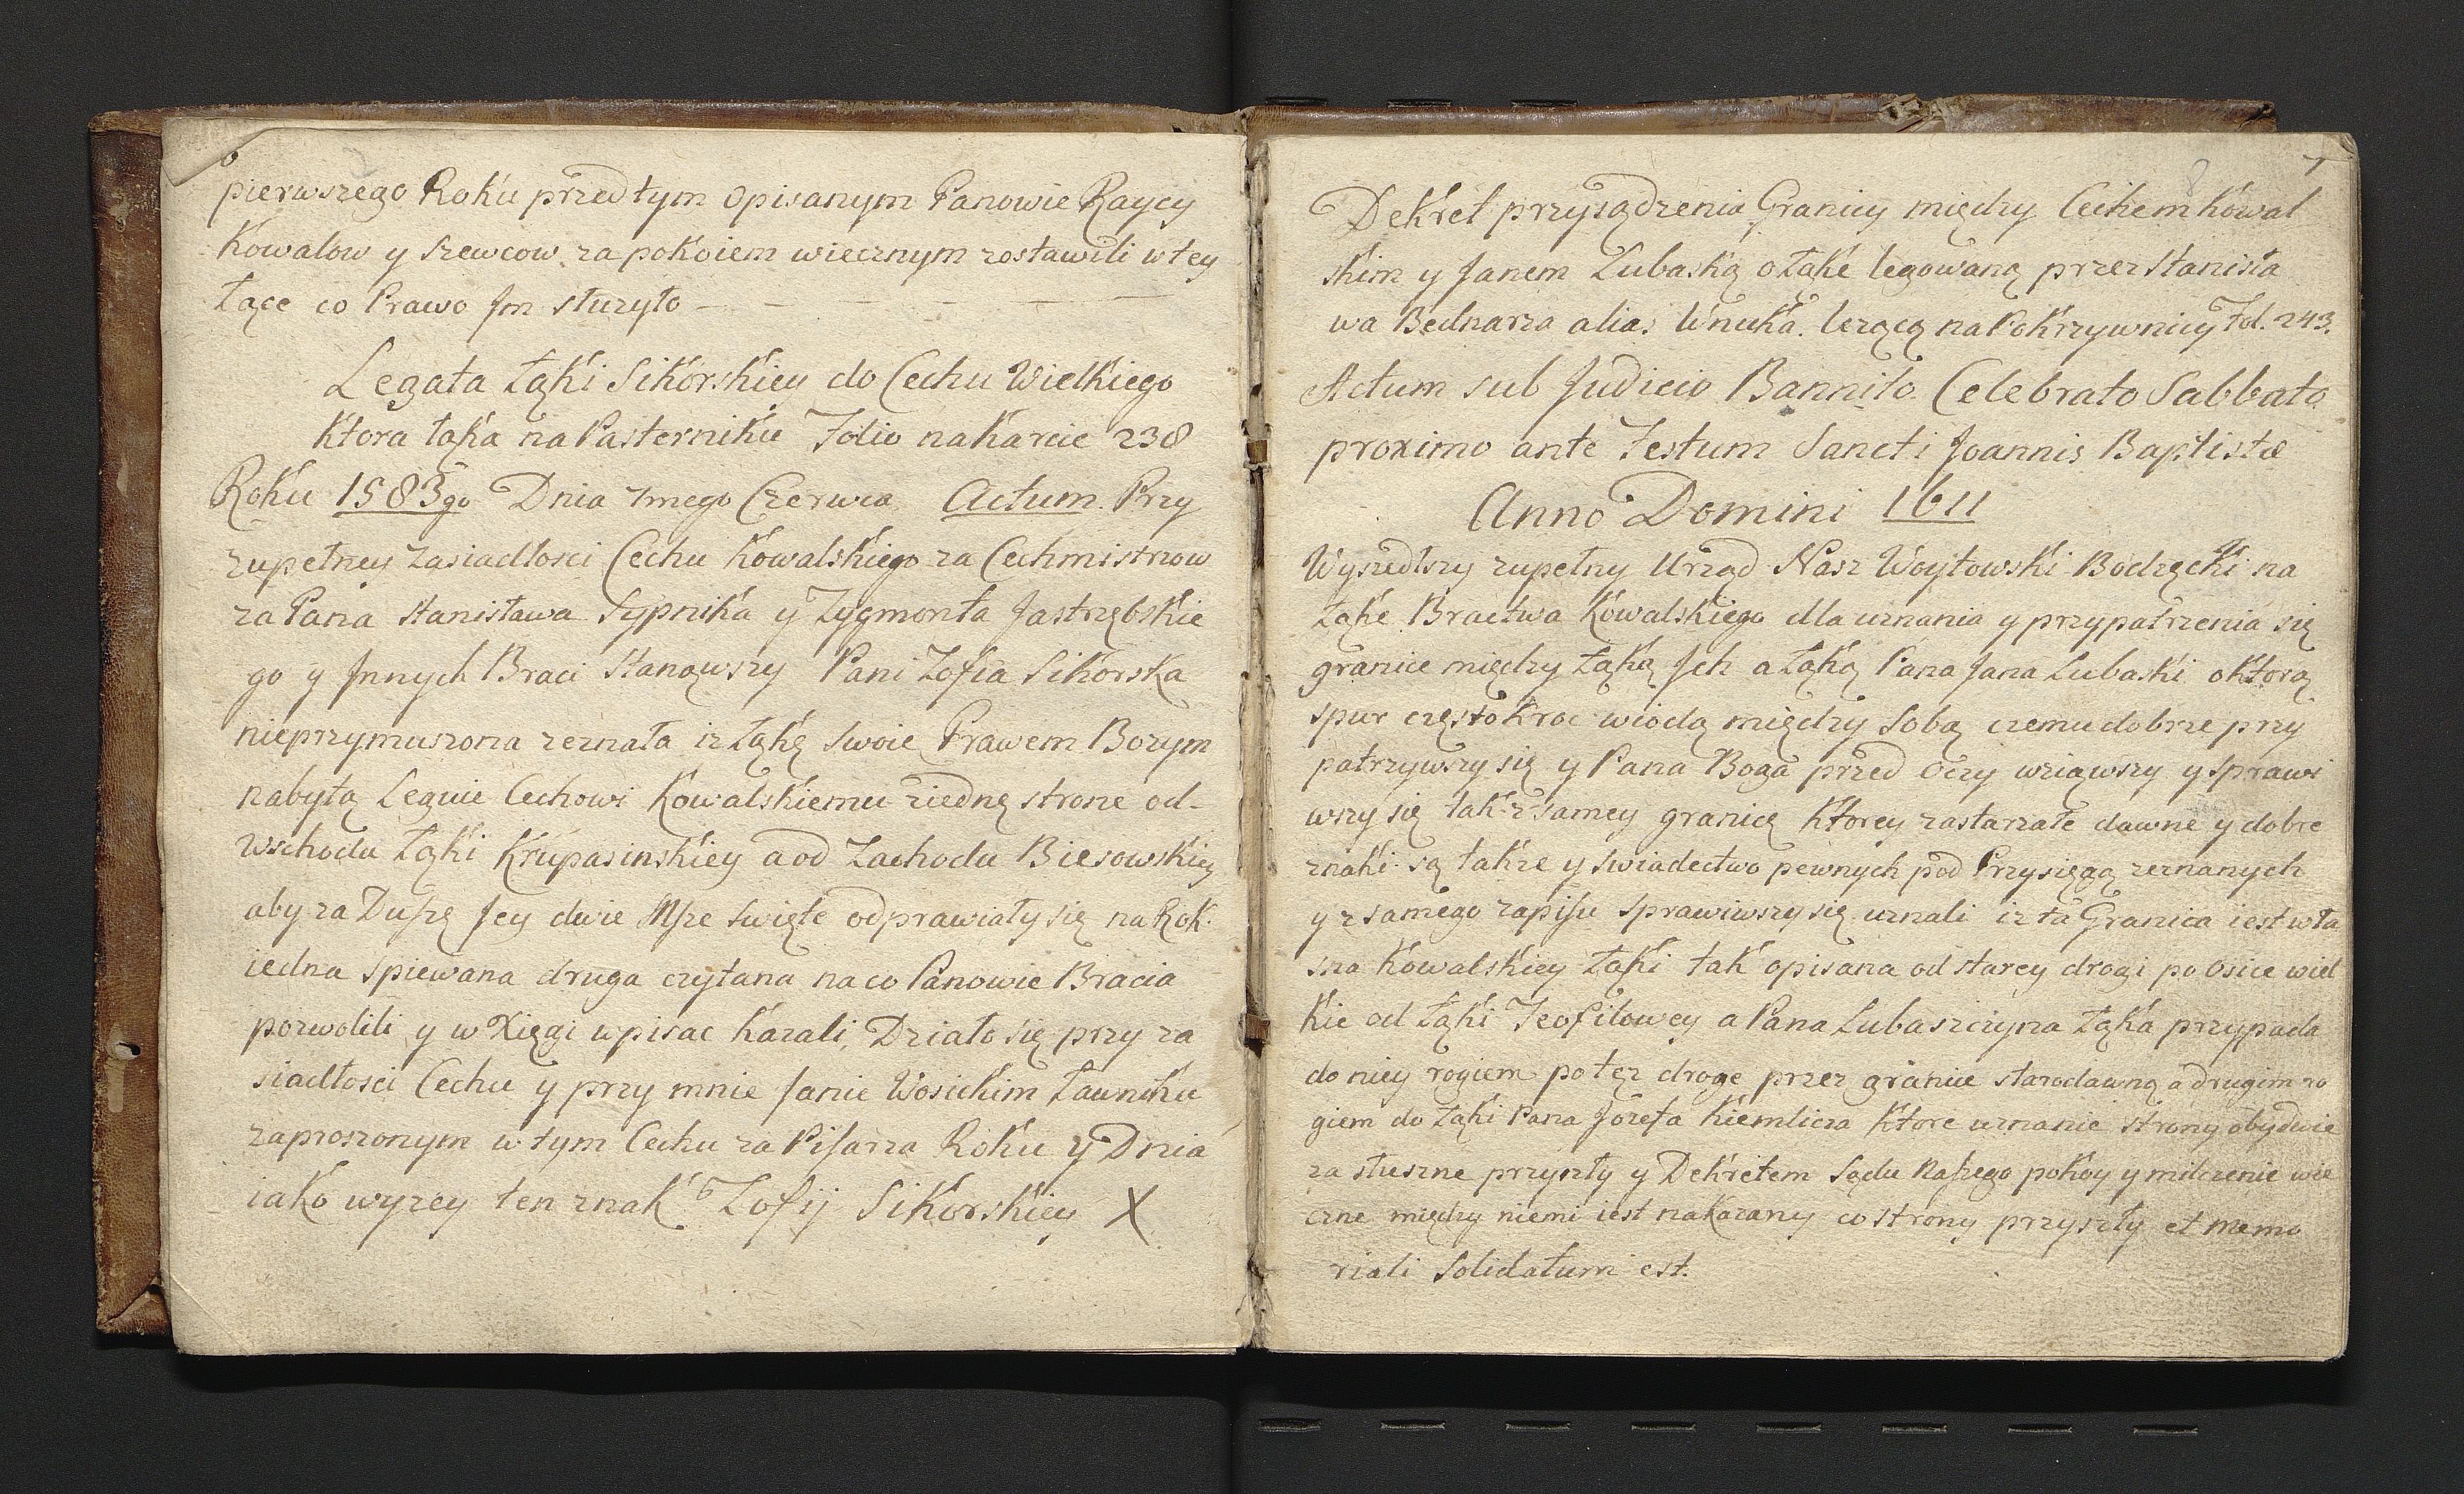 6
pierwszego Roku przed tym opisanym Panowie Raycy
Kowalow y Szewcow za pokoiem wiecznym zostawili w tey
Łące co Prawo Jm słuzyło — — — — —
Legata Łąki Sikorskiey do Cechu Wielkiego
Ktora łąka na Pasterniku Folio na karcie 238
Roku 1583go Dnia 7mego Czerwca Actum. Przy
zupełney zasiadłosci Cechu Kowalskiego za Cechmistrzow
za Pana Stanisława Sypnika y Zygmonta Jastrzębskie
go y Jnnych Braci Stanąwszy Pani Zofia Sikorska
nieprzymuszona zeznała iz Łąkę Swoię Prawem Bozym
nabytą Leguie Cechowi Kowalskiemu ziednę strone od-
wschodu Łąki Krupasinskiey a od Zachodu Biesowskiey
aby za Duszę Jey dwie Msze Swięte odprawiały się na Rok.
iedna Spiewana druga czytana na co Panowie Bracia
pozwolili y w Xięgi wpisac Kazali, Działo się przy za
siadłosci Cechu y przy mnie Janie Wosickim Ławniku
zaproszonym w tym Cechu za Pisarza Roku y Dnia
iako wyzey ten znak Zofij Sikorskiey X
7
Dekret przysądzenia Granicy między Cechem Kowal
skim y Janem Lubaską o Łąke legowaną przez Stanisła
wa Bednarza alias Wnuka. lezącą na Pokrzywnicy Fol. 243.
Actum sub Judicio Bannito. Celebrato Sabbato
proximo ante Festum Sancti Joannis Baptistæ
Anno Domini 1611
Wyszedłszy zupełny Urząd Nasz Woytowski Bodzęcki na
Łąke Bractwa Kowalskiego dla uznania y przypatrzenia się
granice między Łąką Jch a Łąką Pana Jana Lubaski o ktorą
spur częstokroc wiodą między Sobą czemu dobrze przy
patrzywszy się y Pana Boga przed Oczy wziąwszy y sprawi
wszy się tak z samey granicę Ktorey zastarzałe dawne y dobre
znaki są takze y swiadectwo pewnych pod Przysięgą zeznanych
y z samego zapisu sprawiwszy się uznali iz ta Granica iest wła
sna Kowalskiey Łąki tak opisana od starey drogi po Osice wiel
kie od Łąki Teofilowey a Pana Lubaszczyna Łąka przypada
do niey rogiem po tęz droge przez granice starodawną a drugim ro
giem do Łąki Pana Jozefa Kiemlicza Ktore uznanie strony obydwie
za słuszne przyięły y Dekretem Sądu Naszego pokoy y milczenie wie
czne między niemi iest nakazany co strony przyięły et memo
riali Solidatum est.